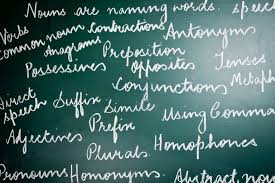 Nouns are naming words. speech
Verbs
common noun contractions Antonyms
Anagrams Preposition
Possessives Opposites Tenses
Conjunctions Metaph
Direct
speech Suffix Simile Using Comma
Adjectives Prefix
Plurals Homophones
Pronouns Homonyms. Abstract nou